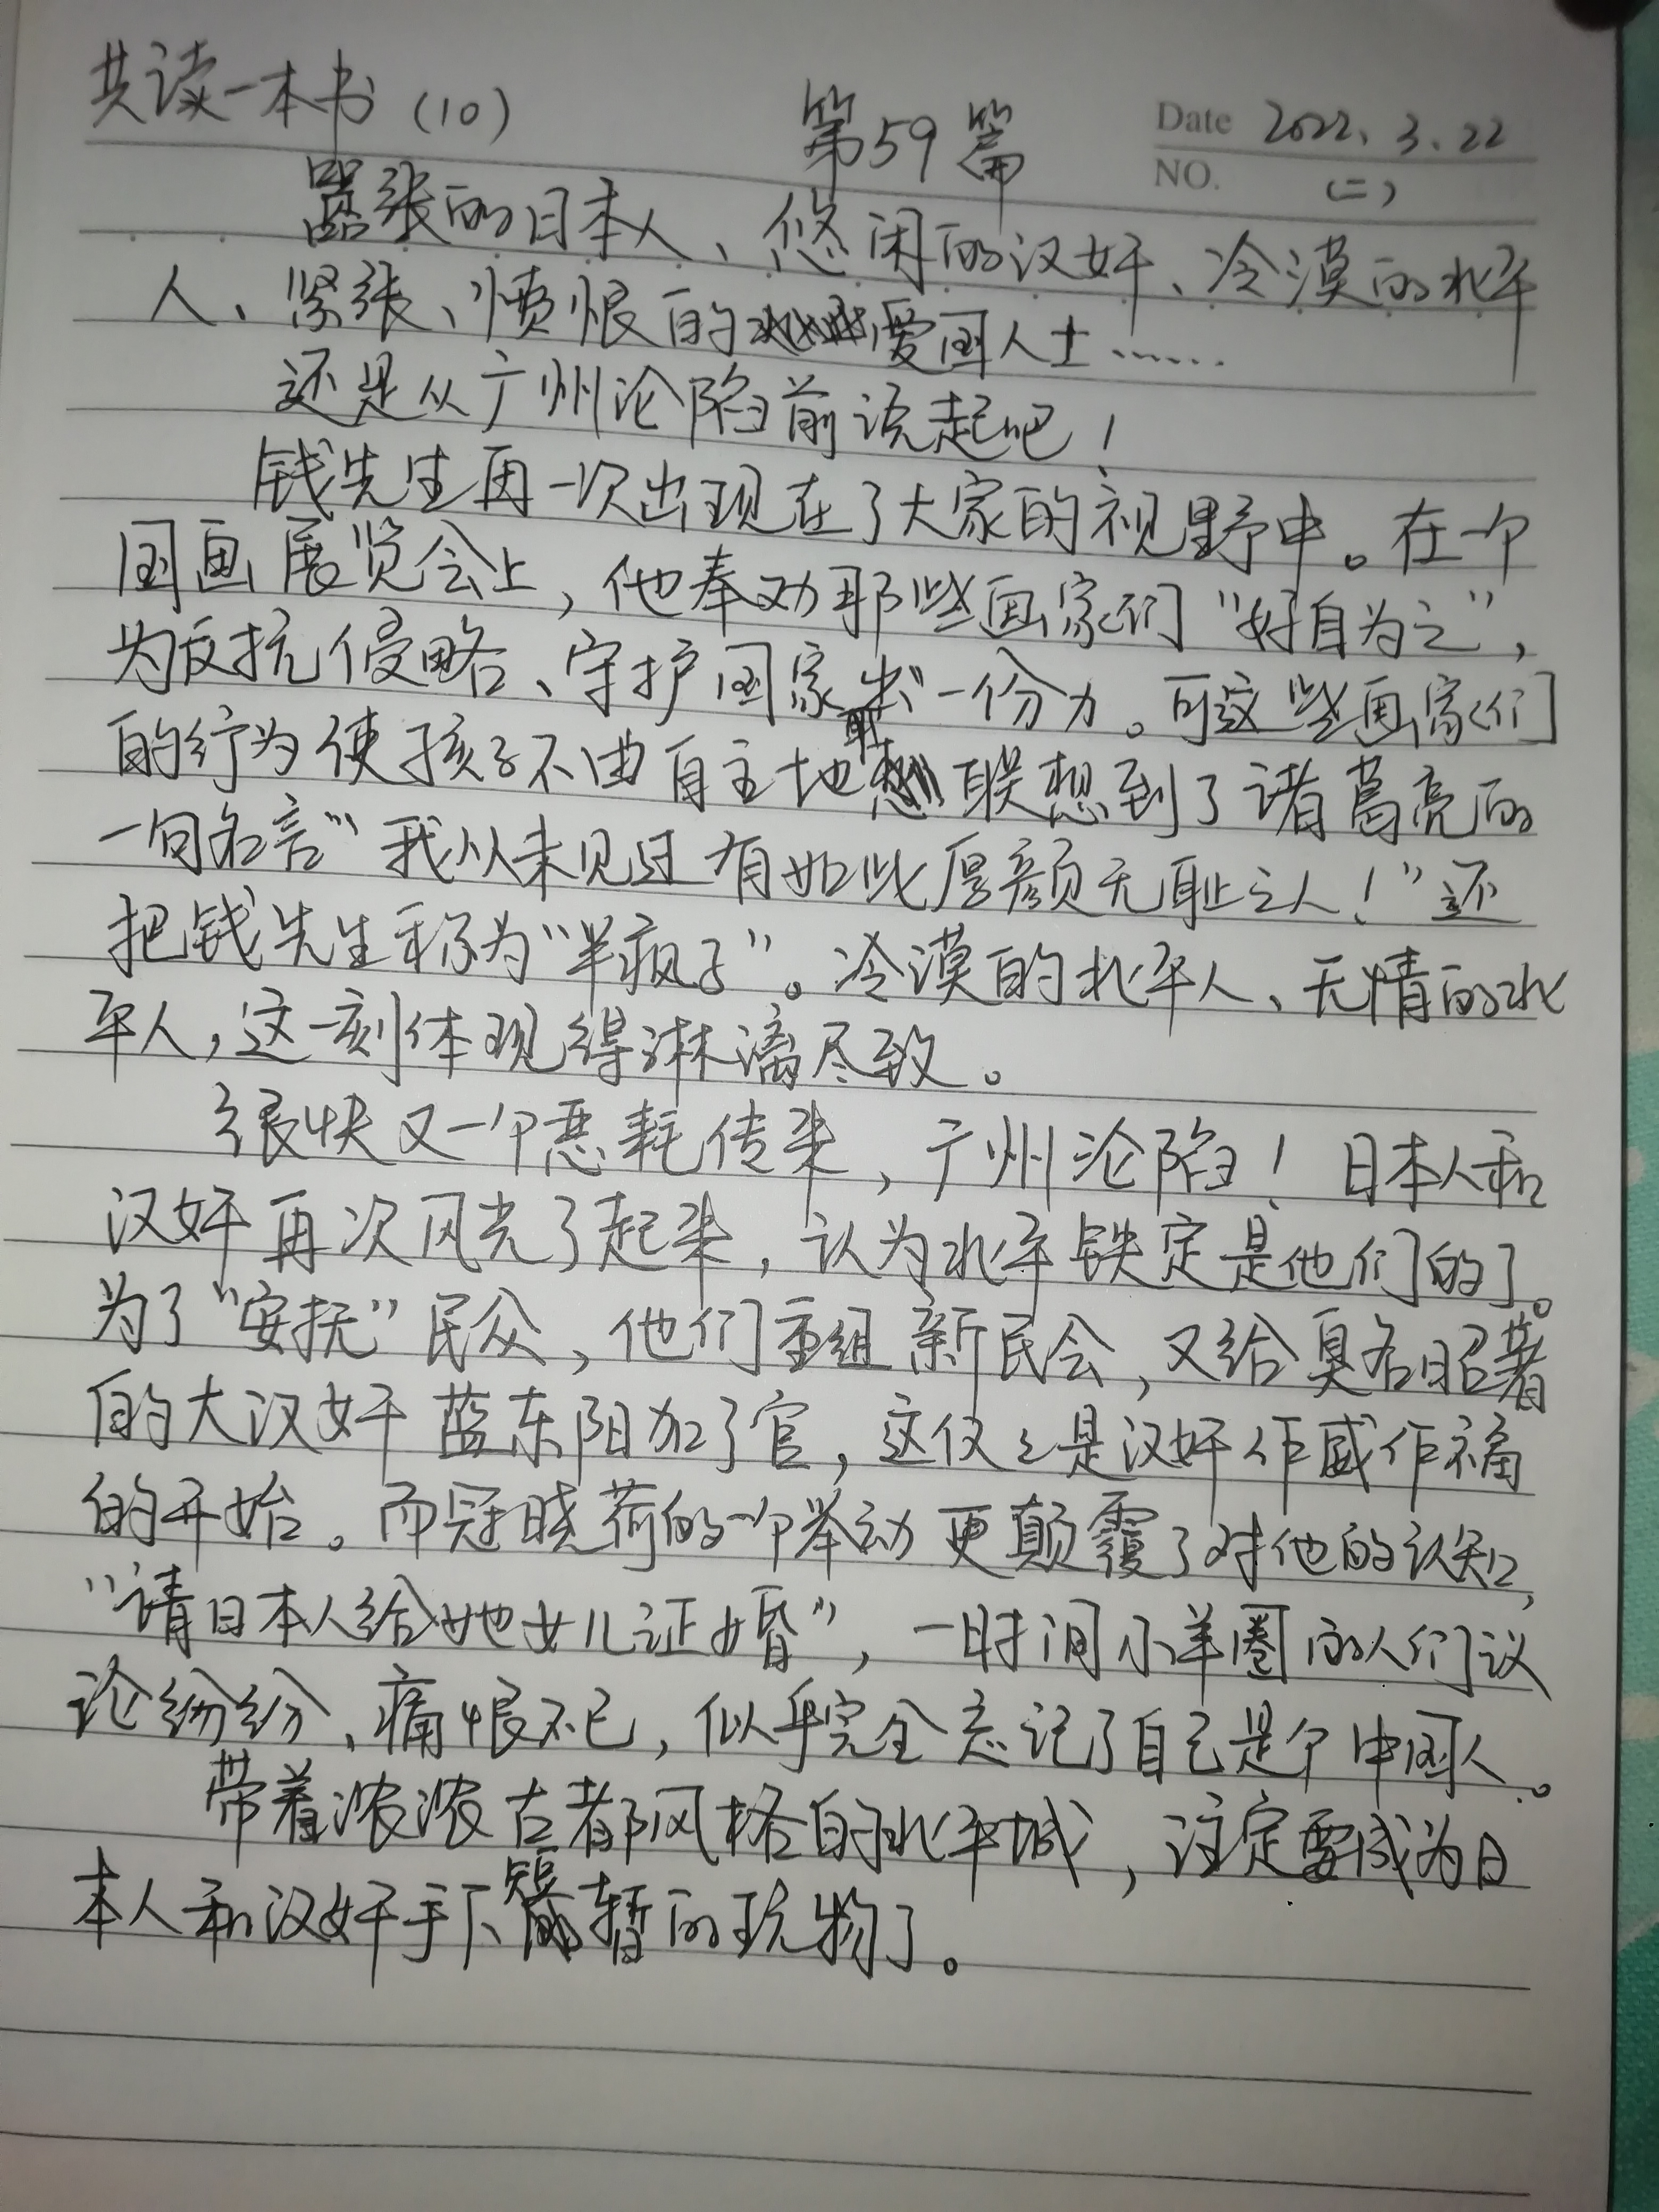 共读一本书(10)
第59篇
Date 2022.3.22
NO. (二)
嚣张的日本人、悠闲的汉奸、冷漠的北平
人、紧张、愤恨的爱国人士……
还是从广州沦陷前说起吧！
钱先生再一次出现在了大家的视野中。在一个
国画展览会上，他奉劝那些画家们“好自为之”，
为反抗侵略、守护国家出一份力。可这些画家们
的行为使孩子不由自主地联想到了诸葛亮的
一句名言“我从未见过有如此厚颜无耻之人！”还
把钱先生称为“半疯子”。冷漠的北平人、无情的北
平人，这一刻体现得淋漓尽致。
很快又一个恶耗传来，广州沦陷！日本人和
汉奸再次风光了起来，认为北平铁定是他们的了。
为了“安抚”民众，他们重组新民会，又给臭名昭著
的大汉奸蓝东阳加了官，这仅仅是汉奸作威作福
的开始。而冠晓荷的一个举动更颠覆了对他的认知，
“请日本人给她女儿证婚”，一时间小羊圈的人们议
论纷纷、痛恨不已，似乎完全忘记了自己是个中国人。
带着浓浓古都风格的北平城，注定要成为日
本人和汉奸手下短暂的玩物了。